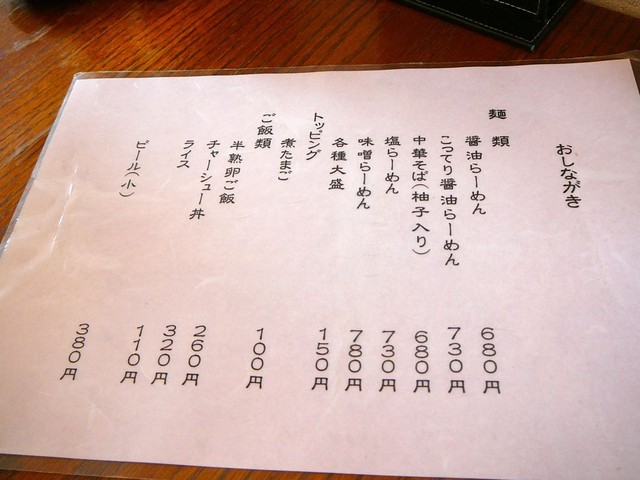 おしながき
麺類
醤油らーめん 680円
こってり醤油らーめん 730円
中華そば(柚子入り) 680円
塩らーめん 730円
味噌らーめん 780円
各種大盛 150円
トッピング
煮たまご 100円
ご飯類
半熟卵ご飯 260円
チャーシュー丼 320円
ライス 110円
ビール(小) 380円